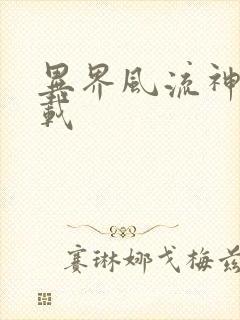 異界風流神
載
賽琳娜戈梅茲